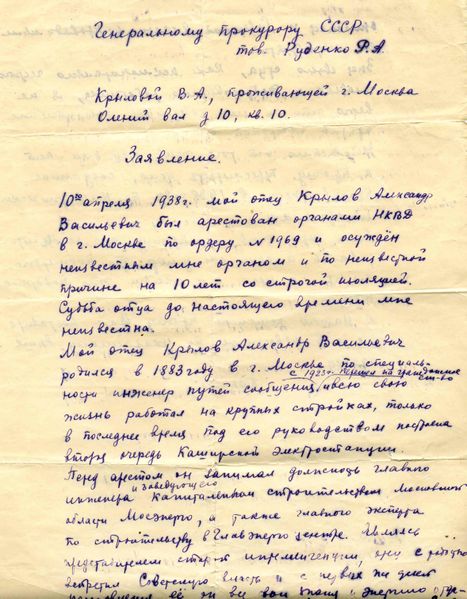 Генеральному прокурору СССР
тов. Руденко Р.А.
Крыловой В.А., проживающей г. Москва
Олений вал д 10, кв. 10.
Заявление.
10го апреля 1938г. мой отец Крылов Александр
Васильевич был арестован органами НКВД
в г. Москве по ордеру N 1969 и осуждён
неизвестным мне органом и по неизвестной
причине на 10 лет со строгой изоляцией.
Судьба отца до настоящего времени мне
неизвестна.
Мой отец Крылов Александр Васильевич
родился в 1883 году в г. Москве по специаль-
с 1923г. перешел на гражданское
ности инженер путей сообщения, и всю свою
жизнь работал на крупных стройках, только
в последнее время под его руководством построена
вторая очередь Каширской электростанции.
Перед арестом он занимал должность главного
и заведующего
инженера Капитальном строительством Московской
области Мосэнерго, а также главного эксперта
по строительству в Главэнерго центре. Являясь
представителем старой интеллигенции, он с
встретил Советскую власть и с первых же дней
её он все свои знания